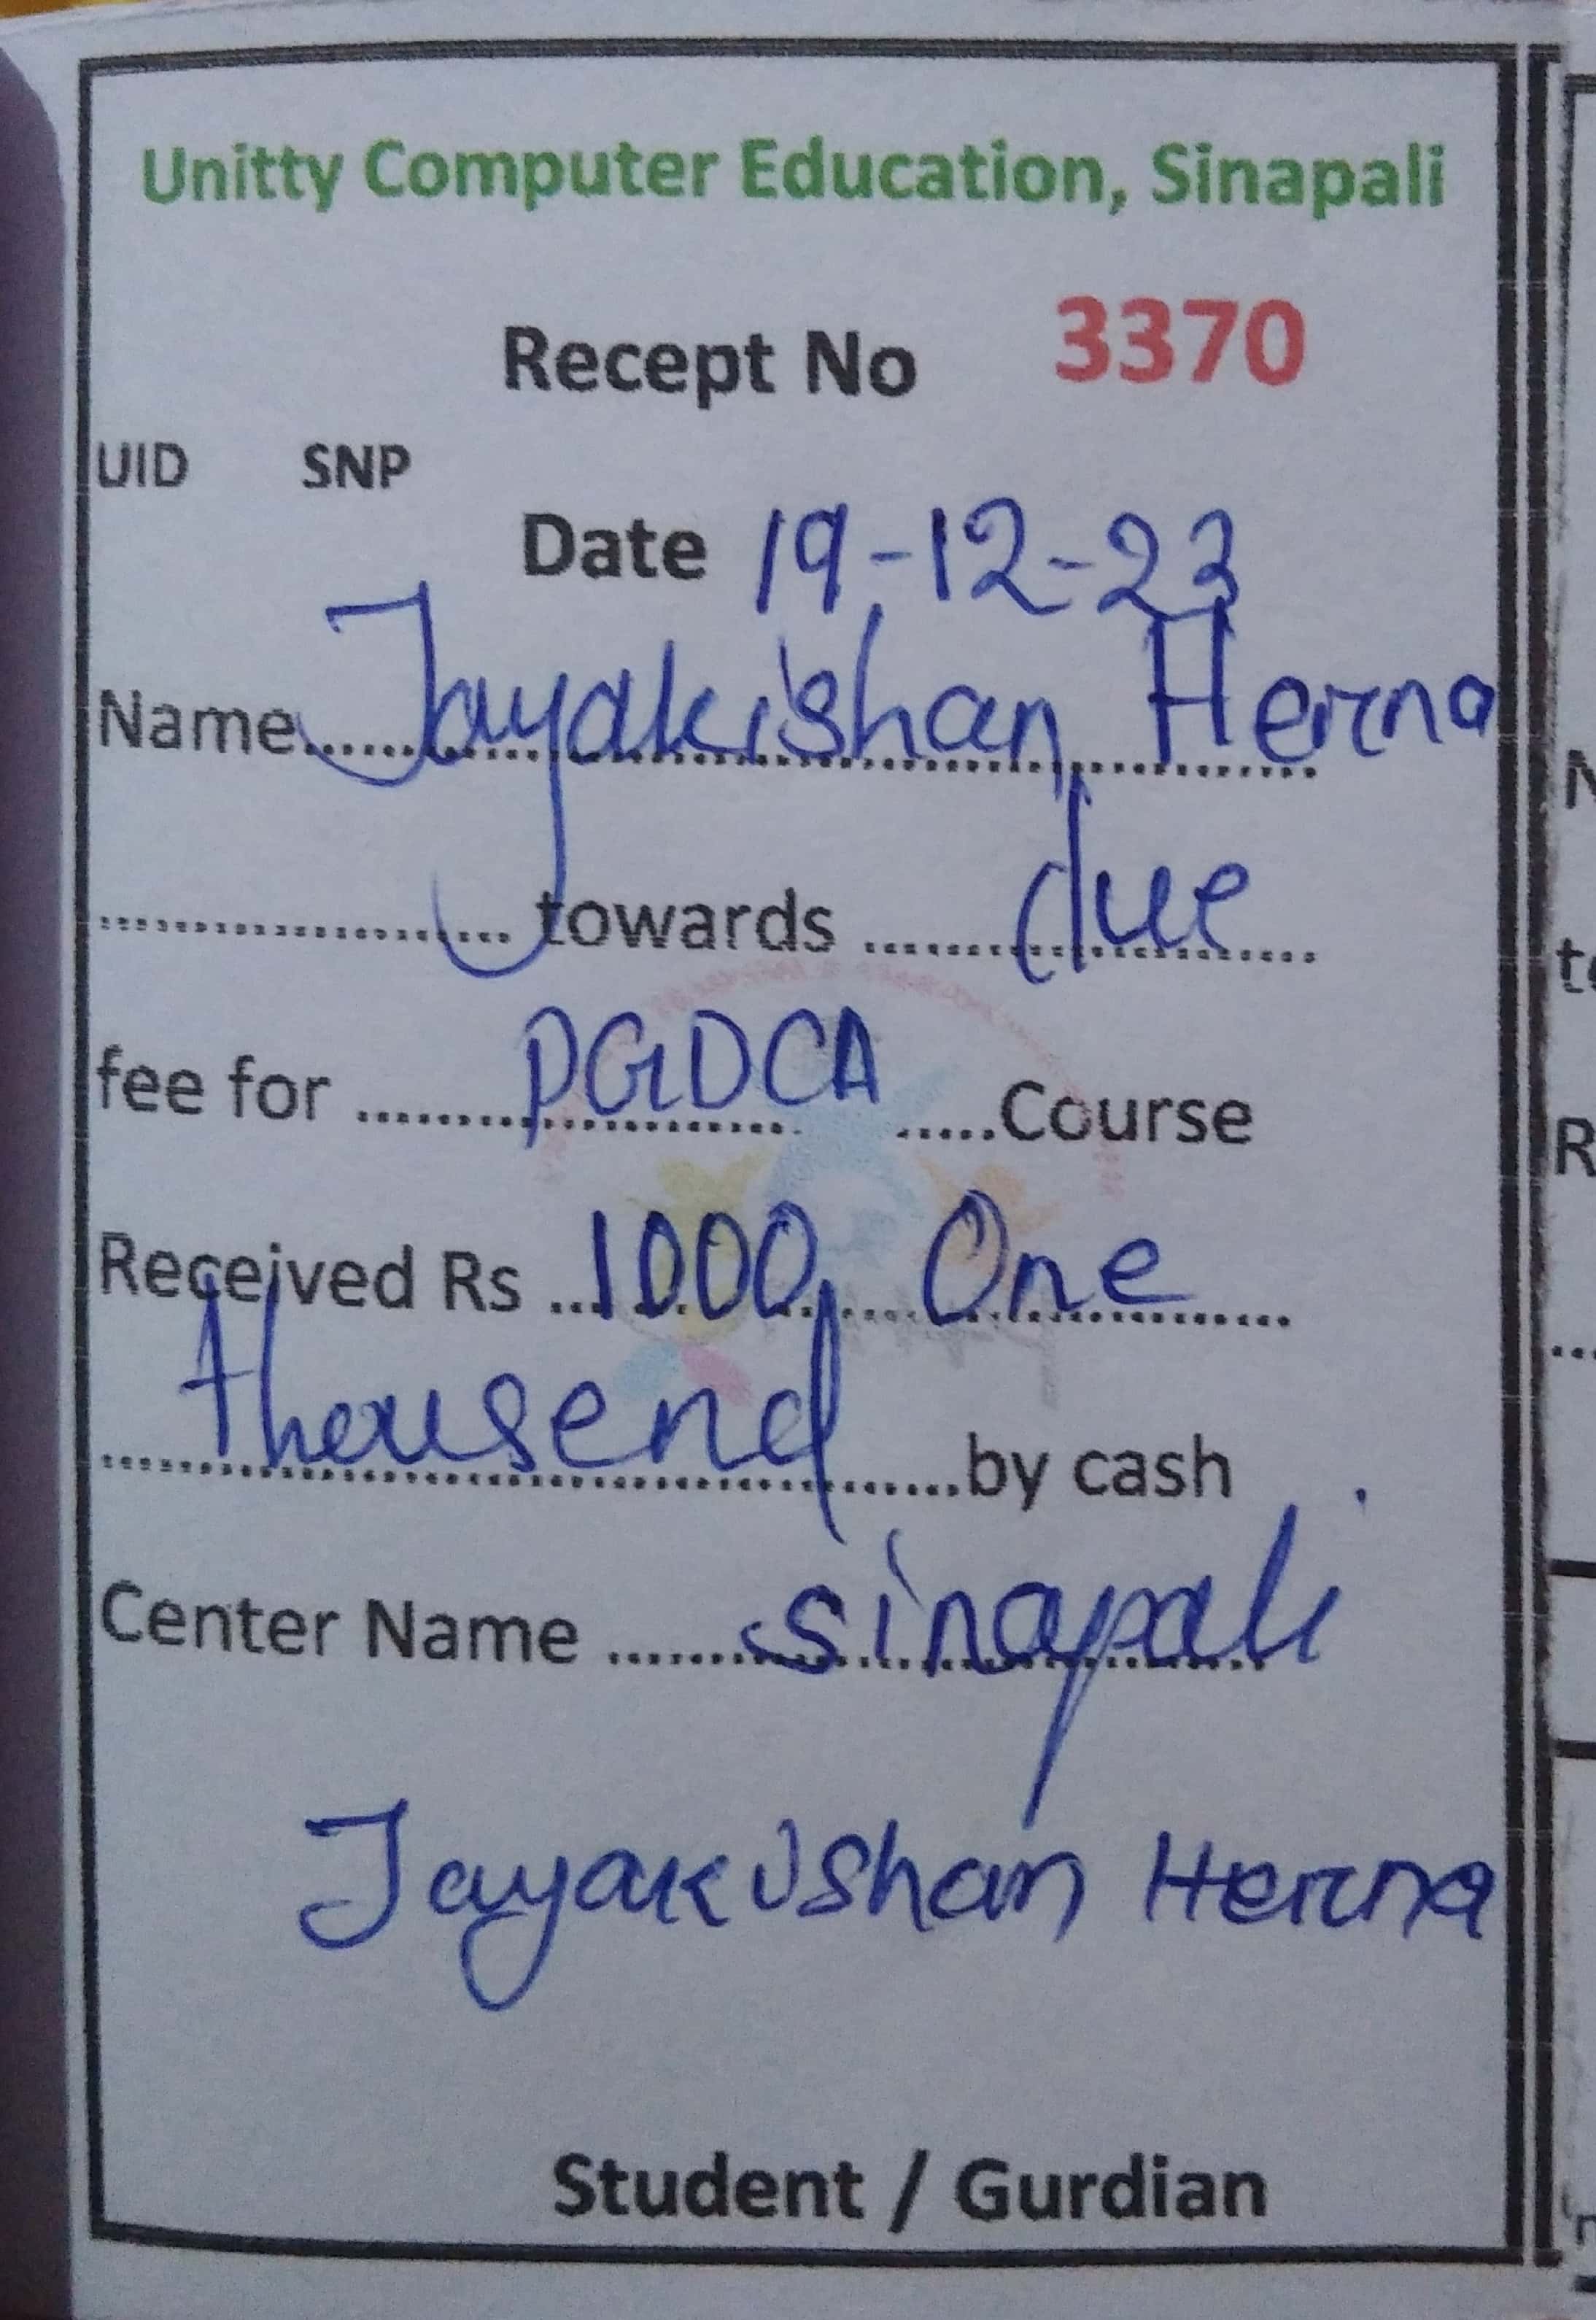 Unitty Computer Education, Sinapali
Recept No 3370
UID SNP
Date 19-12-23
Name Jayakishan Herna
towards due
fee for PGDCA Course
Received Rs 1000 One
thousend by cash
Center Name sinapali
Jayakishan Herna
Student / Gurdian